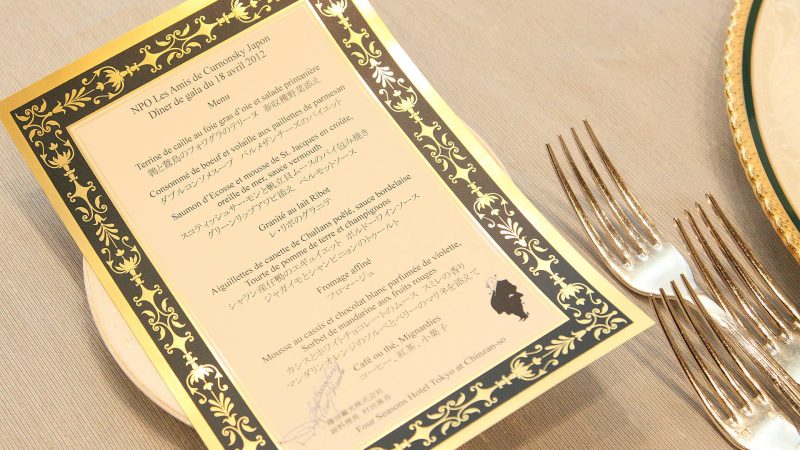 NPO Les Amis de Curnonsky Japon
Dîner de gala du 18 avril 2012
Menu
Terrine de caille au foie gras d'oie et salade printanière
鶉と鵞鳥のフォワグラのテリーヌ 春収穫野菜添え
Consommé de boeuf et volaille aux paillettes de parmesan
ダブルコンソメスープ パルメザンチーズのパイエット
Saumon d'Ecosse et mousse de St. Jacques en croûte,
oreille de mer, sauce vermouth
スコティッシュサーモンと帆立貝ムースのパイ包み焼き
グリーンリップアワビ添え ベルモットソース
Granité au lait Ribot
レ・リボのグラニテ
Aiguillettes de canette de Challans poêlé, sauce bordelaise
Tourte de pomme de terre et champignons
シャラン産仔鴨のエギュイエット ボルドーワインソース
ジャガイモとシャンピニョンのトゥールト
Fromage affiné
フロマージュ
Mousse au cassis et chocolat blanc parfumée de violette,
Sorbet de mandarine aux fruits rouges
カシスとホワイトチョコレートのムース スミレの香り
マンダリンオレンジのソルベとベリーのマリネを添えて
Café ou thé, Mignardies
コーヒー、紅茶、小菓子
藤田観光株式会社
総料理長
Four Seasons Hotel Tokyo at Chinzan-so